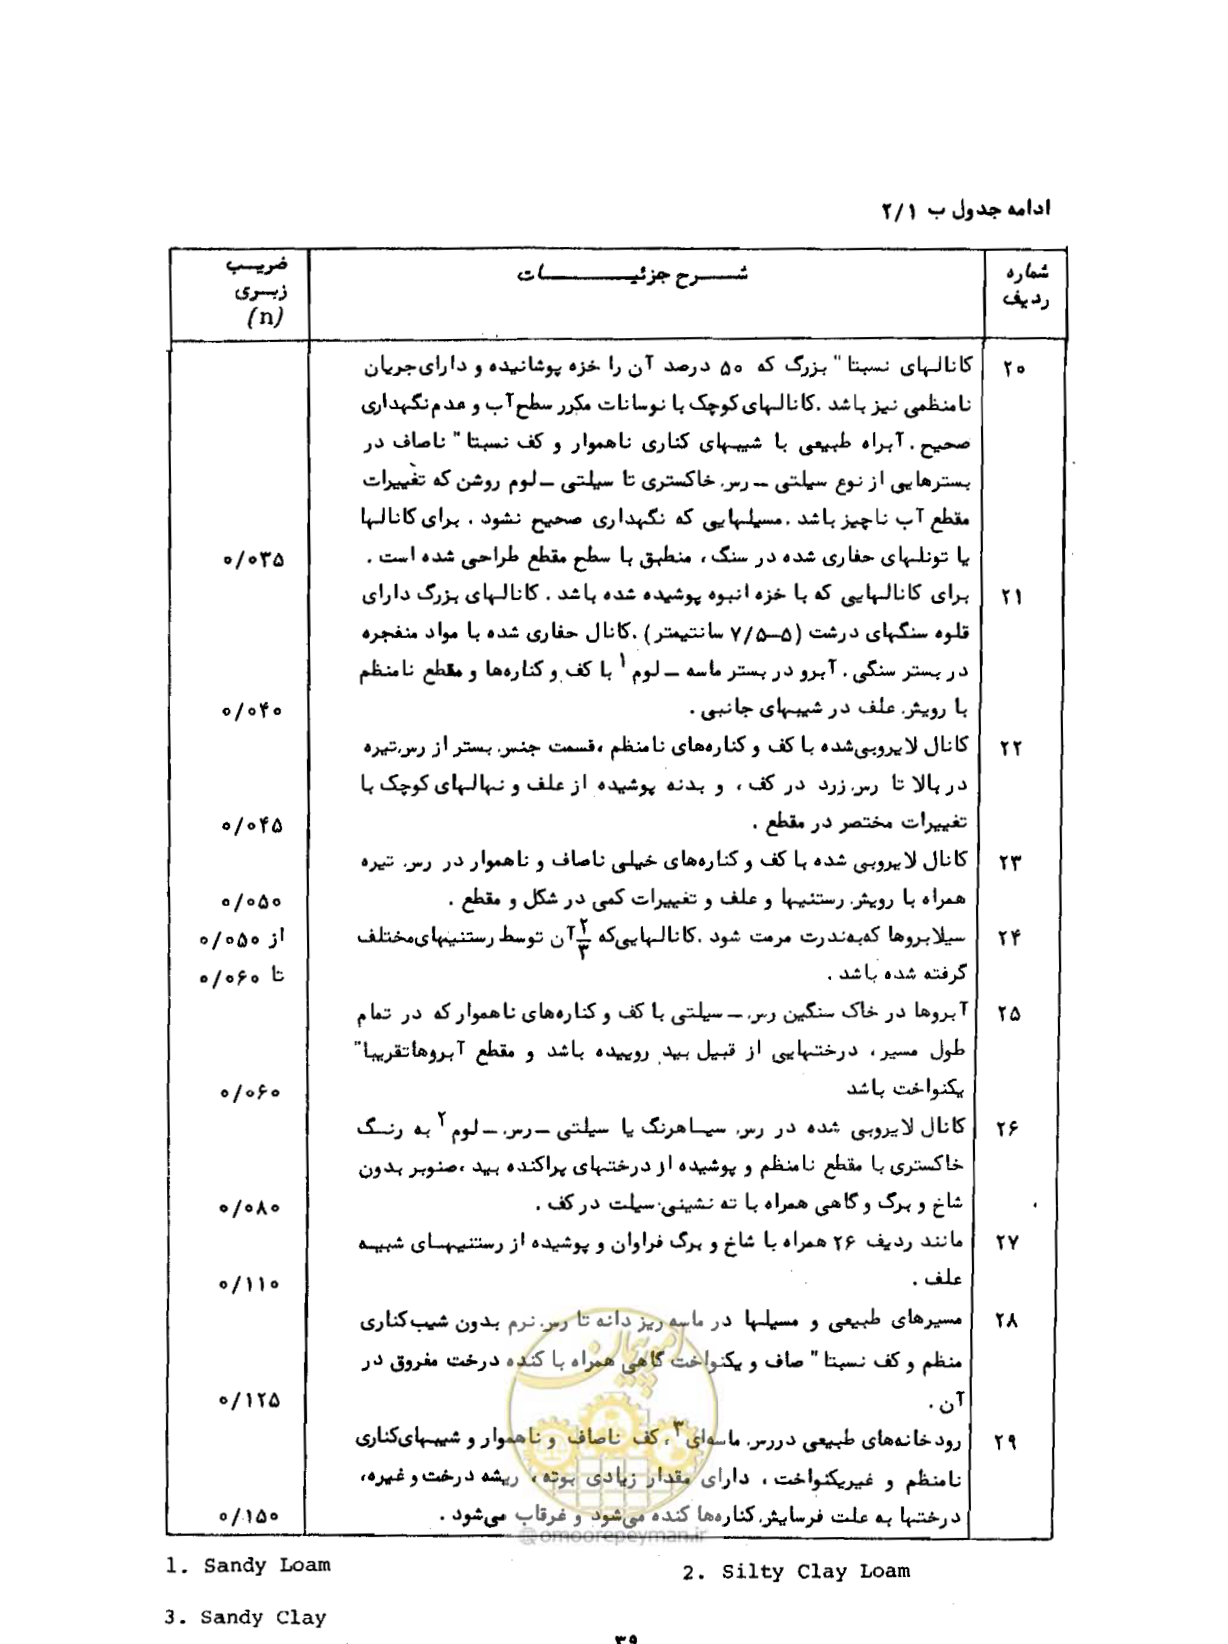 ادامه جدول ب ۲/۱
شماره ردیف
شـــرح جزئیـــــــات
ضریـب زبـری (n)
۲۰
کانالهای نسبتا" بزرگ که ۵۰ درصد آن را خزه پوشانیده و دارای جریان
نامنظمی نیز باشد .کانالهای کوچک با نوسانات مکرر سطح آب و عدم نگهداری
صحیح . آبراه طبیعی با شیبهای کناری ناهموار و کف نسبتا" ناصاف در
بسترهایی از نوع سیلتی – رس خاکستری تا سیلتی – لوم روشن که تغییرات
مقطع آب ناچیز باشد .مسیلهایی که نگهداری صحیح نشود . برای کانالها
یا تونلهای حفاری شده در سنگ ، منطبق با سطح مقطع طراحی شده است .
۰/۰۳۵
۲۱
برای کانالهایی که با خزه انبوه پوشیده شده باشد . کانالهای بزرگ دارای
قلوه سنگهای درشت (۵–۷/۵ سانتیمتر) .کانال حفاری شده با مواد منفجره
در بستر سنگی . آبرو در بستر ماسه – لوم ۱ با کف و کناره‌ها و مقطع نامنظم
با رویش علف در شیبهای جانبی .
۰/۰۴۰
۲۲
کانال لایروبی‌شده با کف و کناره‌های نامنظم ،قسمت جنس بستر از رس تیره
در بالا تا رس زرد در کف ، و بدنه پوشیده از علف و نهالهای کوچک با
تغییرات مختصر در مقطع .
۰/۰۴۵
۲۳
کانال لایروبی شده با کف و کناره‌های خیلی ناصاف و ناهموار در رس تیره
همراه با رویش رستنیها و علف و تغییرات کمی در شکل و مقطع .
۰/۰۵۰
۲۴
سیلابروها که‌به‌ندرت مرمت شود .کانالهایی‌که ۲/۳ آن توسط رستنیهای‌مختلف
گرفته شده باشد .
از ۰/۰۵۰
تا ۰/۰۶۰
۲۵
آبروها در خاک سنگین رس – سیلتی با کف و کناره‌های ناهموار که در تمام
طول مسیر ، درختهایی از قبیل بید روییده باشد و مقطع آبروهاتقریبا"
یکنواخت باشد
۰/۰۶۰
۲۶
کانال لایروبی شده در رس سیـاهرنگ یا سیلتی –رس – لوم ۲ به رنـگ
خاکستری با مقطع نامنظم و پوشیده از درختهای پراکنده بید ،صنوبر بدون
شاخ و برگ و گاهی همراه با ته نشینی سیلت در کف .
۰/۰۸۰
۲۷
مانند ردیف ۲۶ همراه با شاخ و برگ فراوان و پوشیده از رستنیهـای شبیـه
علف .
۰/۱۱۰
۲۸
مسیرهای طبیعی و مسیلها در ماسه ریز دانه تا رس نرم بدون شیب کناری
منظم و کف نسبتا" صاف و یکنواخت گاهی همراه با کنده درخت مفروق در
آن .
۰/۱۲۵
۲۹
رودخانه‌های طبیعی دررس ماسه‌ای ۳ ، کف ناصاف و ناهموار و شیبهای‌کناری
نامنظم و غیریکنواخت ، دارای مقدار زیادی بوته ، ریشه درخت و غیره،
درختها به علت فرسایش کناره‌ها کنده می‌شود و غرقاب می‌شود .
۰/۱۵۰
امور پیمان
@omoorepeyman.ir
1. Sandy Loam
2. Silty Clay Loam
3. Sandy Clay
۳۹